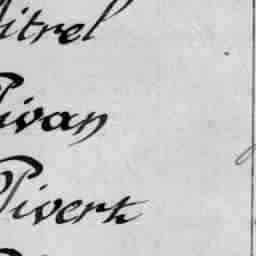 Titrel
Pivan
Pivert